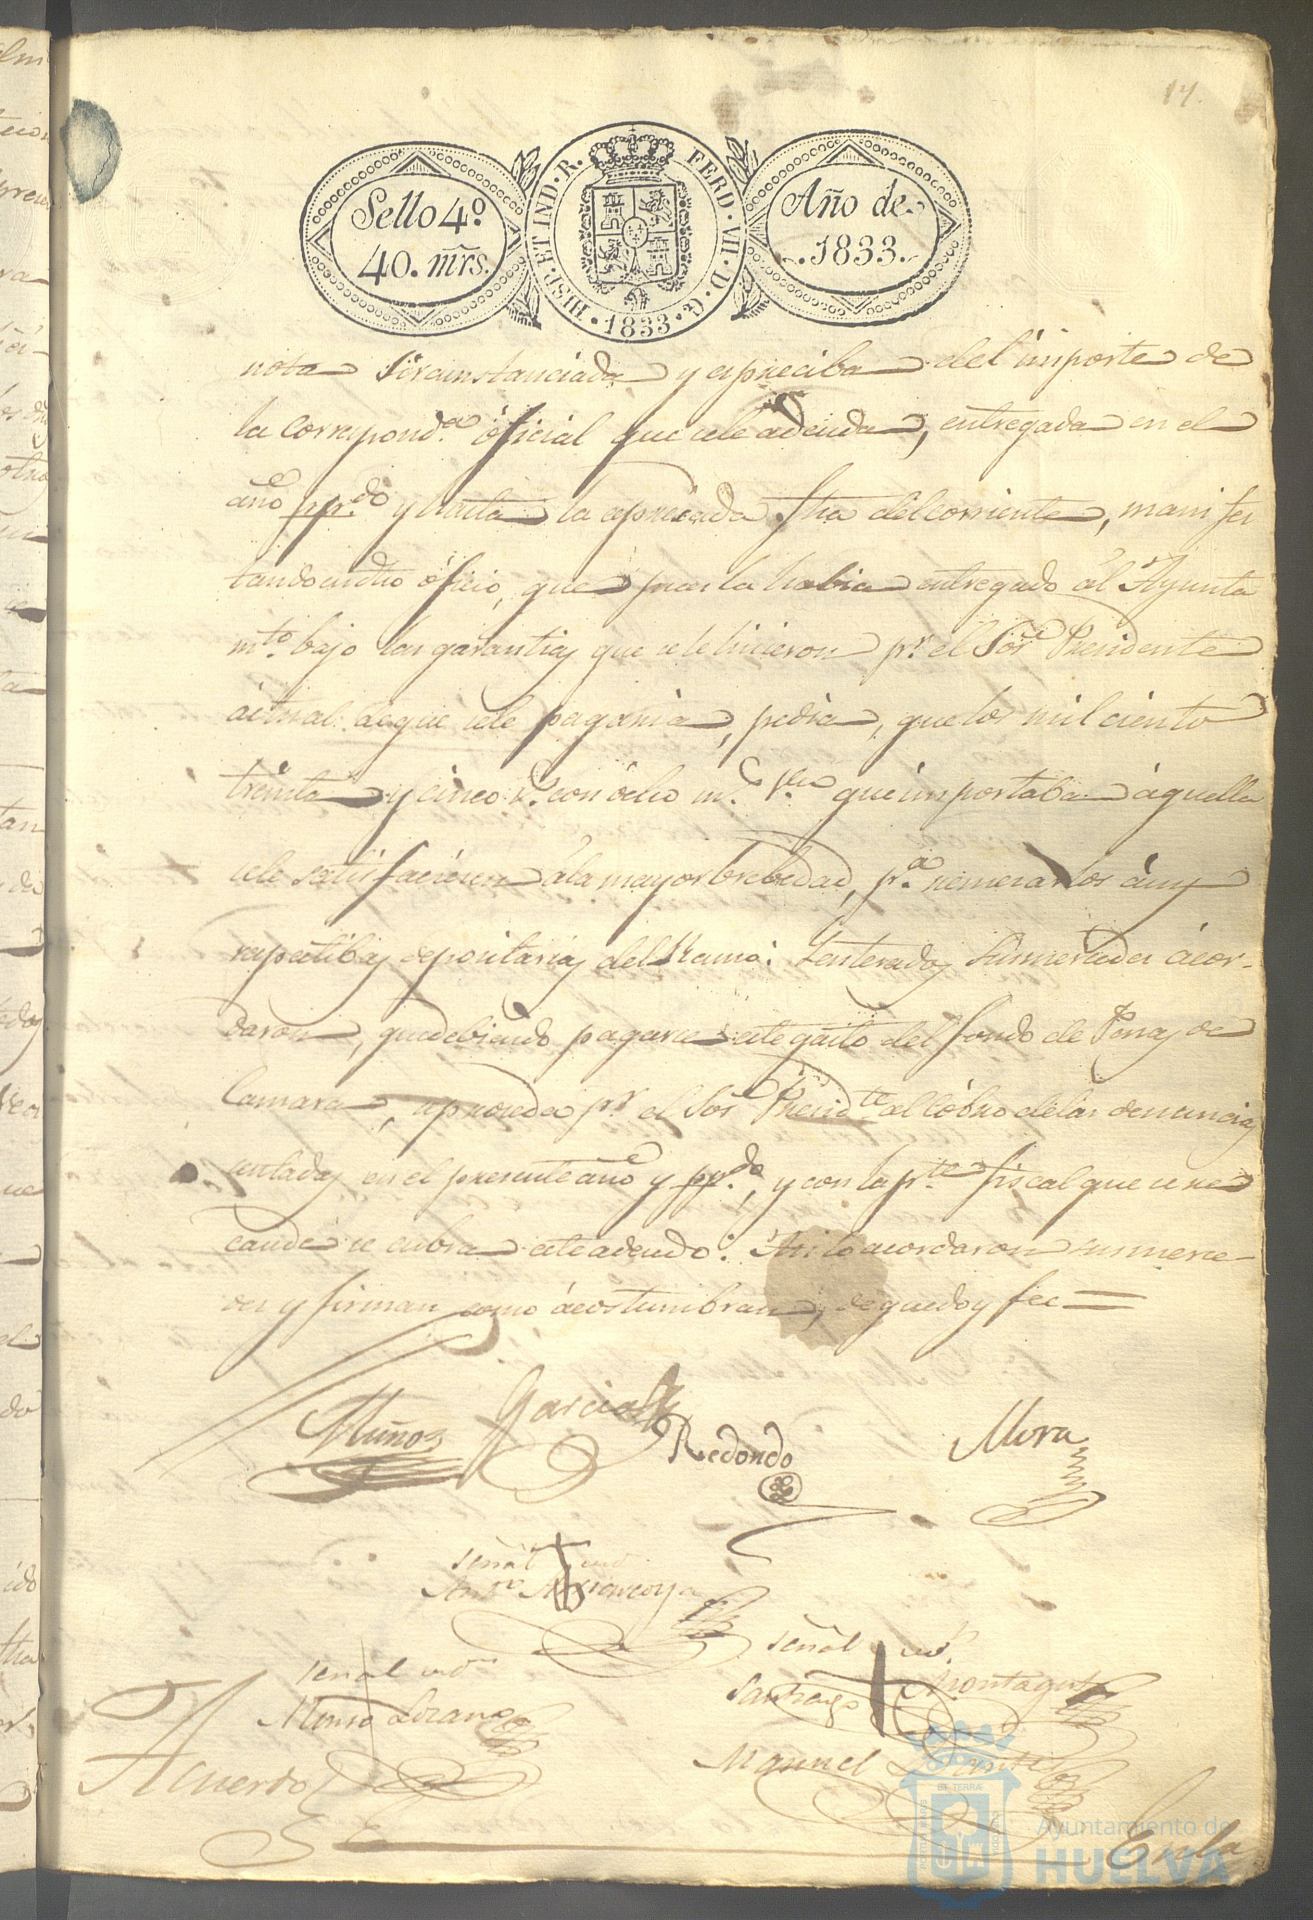 14.
Sello 4º
40. mrs.
HISP · ET IND · R. FERD · VII · D · G · 1833 ·
Año de
1833.
nota circunstanciada y apreciba del importe de
la correspond.ª oficial que sele adeuda, entregada en el
año pp.do y hasta la apreciada fha del corriente, manifes
tando en dho oficio, que pues la habia entregado al Ayunta
mto. bajo las garantias que sele hicieron pr. el Sor. Presidente
actual de que sele pagaria, pedia, que los mil ciento
treinta y cinco rs. con ocho ms. vn que importaba aquella
sele satisfacieren á la mayor brebedad, pr.ª remesarlos á sus
respectibas depocitarias del Ramo: Y enterados sus mercedes acor-
daron, que debiendo pagarse este gasto del fondo de Penas de
Camara, se proceda pr. el Sor. Presid.te al cobro de las denuncias
sentadas en el presente año y pp.do, y con la pte. fiscal que se re
caude se cubra este adeudo: Asi lo acordaron sus merce-
des y firman como acostumbran, de que doy fee =
Muños
Garcia
Redondo
Mora
señal + de
Anto.
señal + de
Alonso Lozano
señal + de
Santiago Montagut
Manuel
Acuerdo
En la
Ayuntamiento de
HUELVA